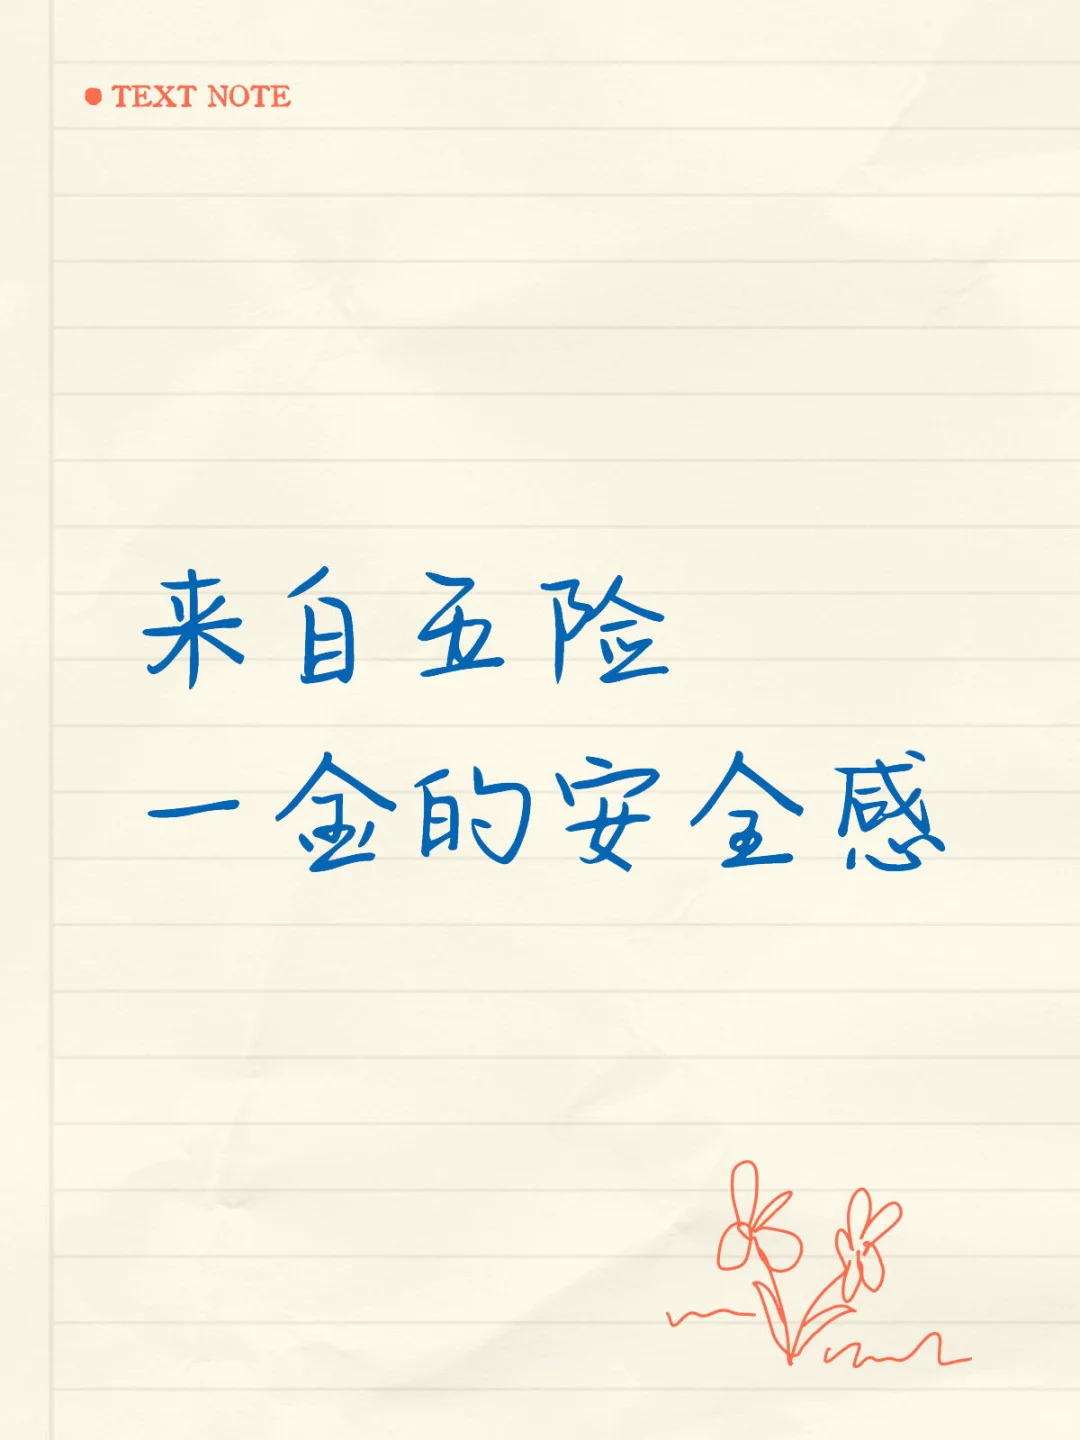 TEXT NOTE
来自五险
一金的安全感